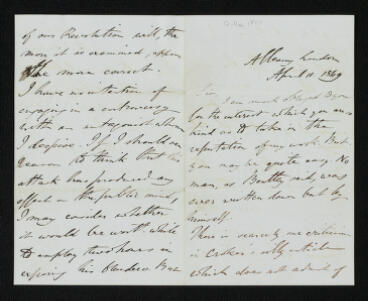 Albany London
April 11 1849
Sir, I am much obliged to you
for the interest which you are so
kind as to take in the
reputation of my work. But
you may be quite easy. No
man, as Bentley said, was
ever written down but by
himself.
There is scarcely one criticism
in Croker's silly article
which does not admit of
of our Revolution will, the
more it is examined, appear
the more correct.
I have no intention of
engaging in a controversy
with an antagonist whom
I despise. If I should see
reason to think that his
attack has produced any
effect on the public mind,
I may consider whether
it would be worth while
to employ two hours in
exposing his blunders. But